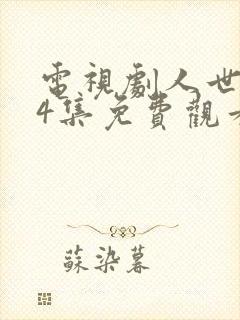 電視劇人世
4集免費觀
蘇染暮